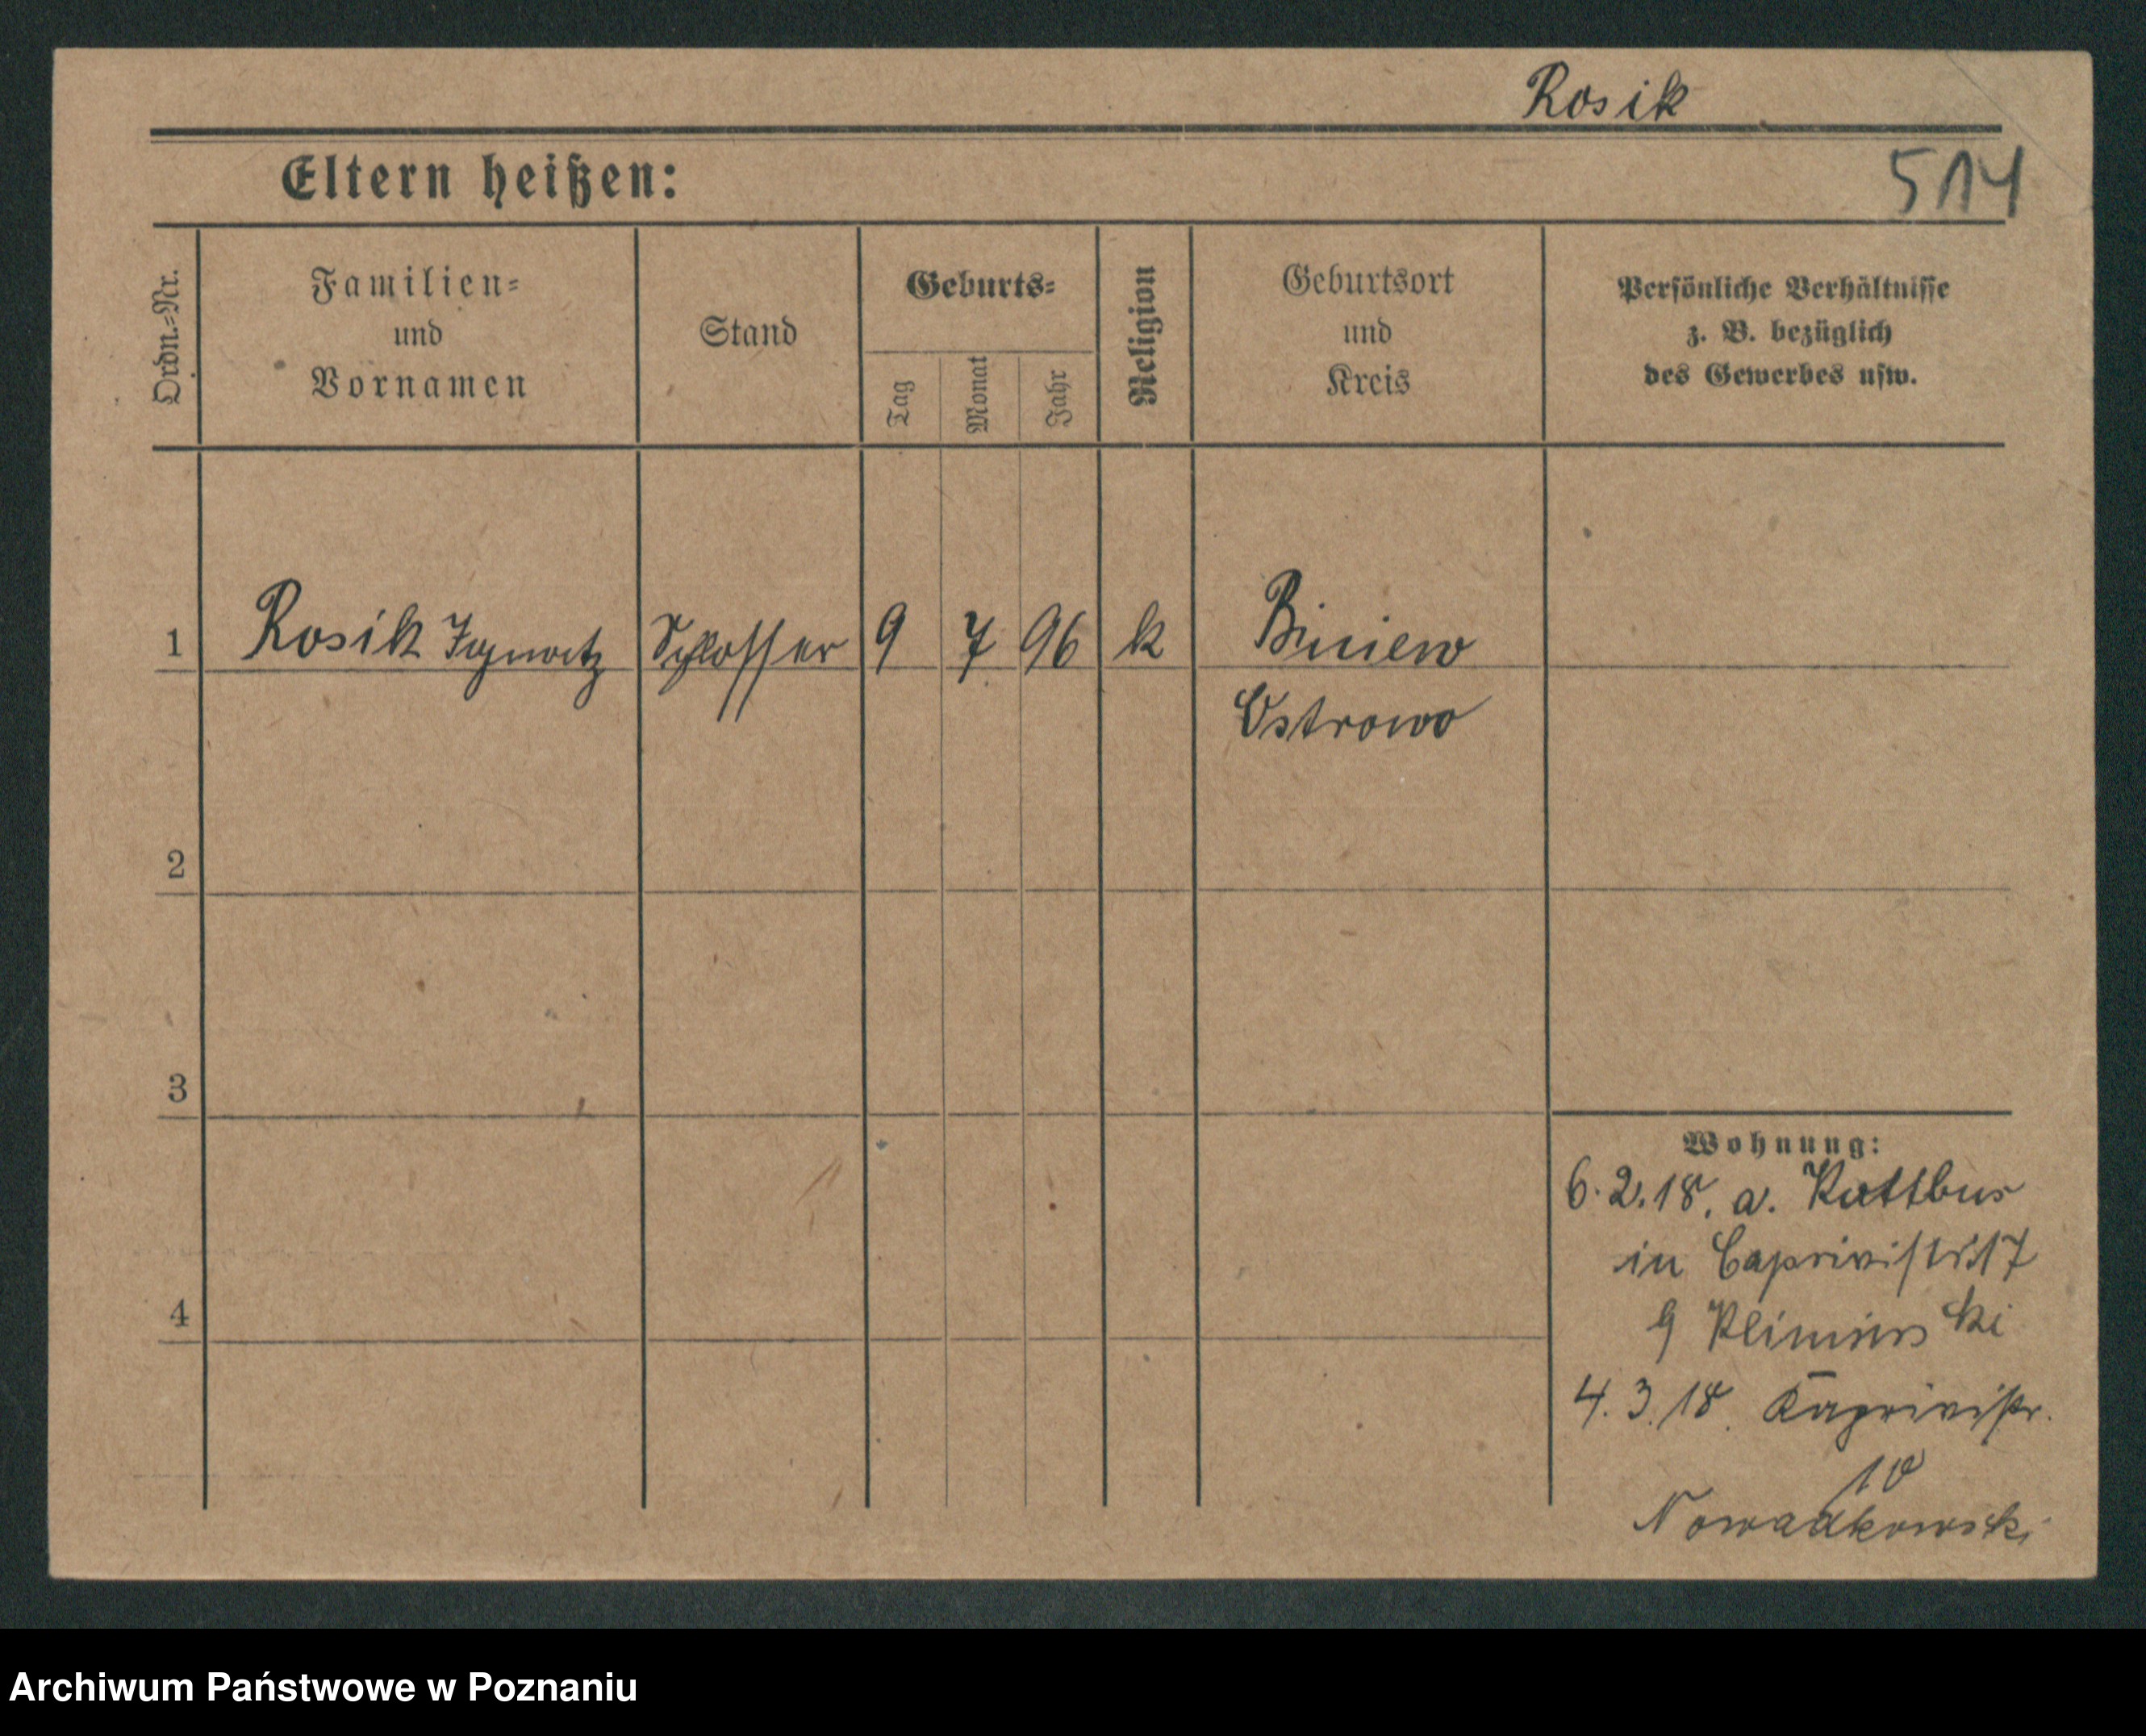 Rosik
Eltern heißen:
514
Ordn.-Nr.
Familien-
und
Vornamen
Stand
Geburts-
Tag
Monat
Jahr
Religion
Geburtsort
und
Kreis
Persönliche Verhältnisse
z. B. bezüglich
des Gewerbes usw.
1 Rosik Ignatz Schlosser 9 7 96 k Biniew
Ostrowo
2
3
4
Wohnung:
6.2.18. a. Kottbus
in Caprivistr 17
Kliminski
4.3.18. Kaprivistr.
10
Archiwum Państwowe w Poznaniu